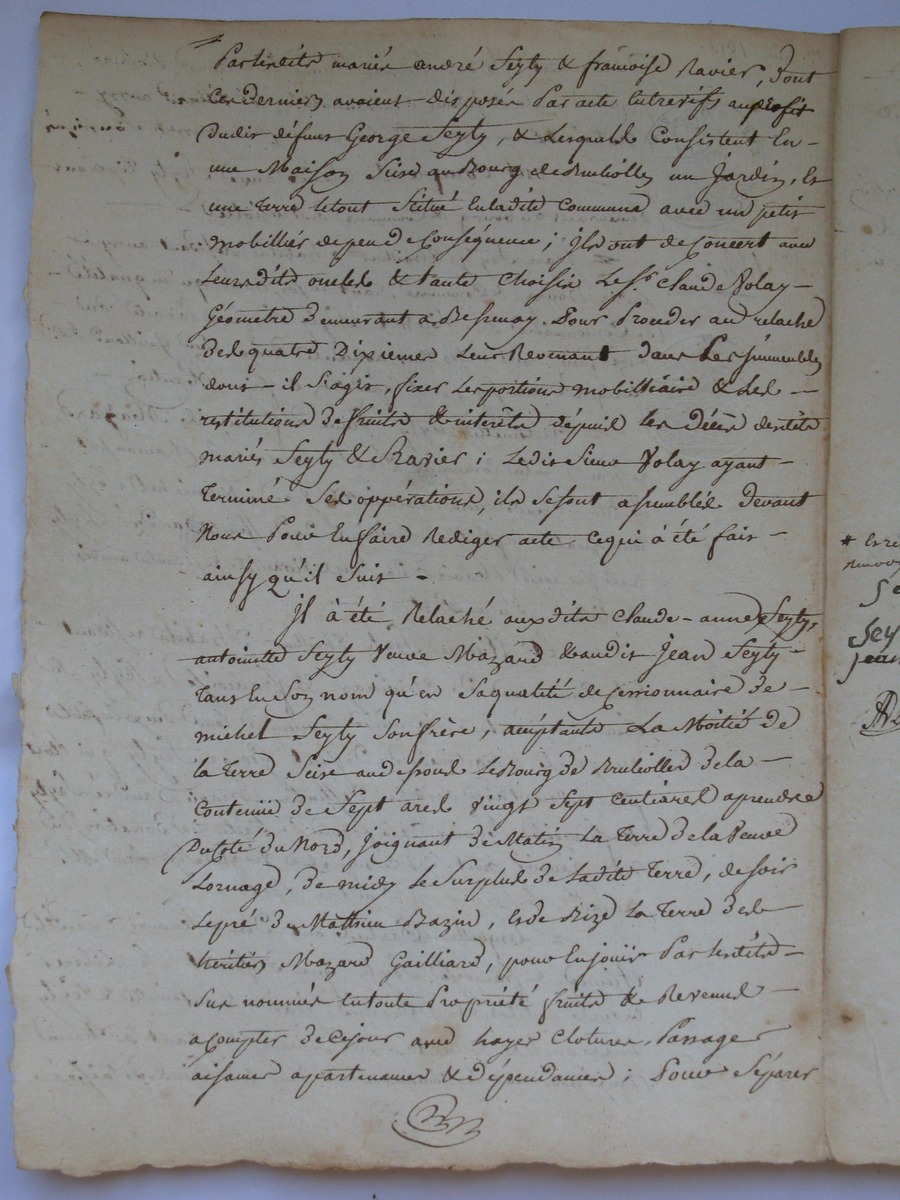 Par lesdits mariés andré Seyty & francoise Ravier, dont
Ces derniers avaient disposés Par acte Entrevifs au profit
Dudit défunt George Seyty, & Lesquels Consistent En
une Maison Sise au Bourg de Brullolles un Jardin, Et
une terre letout Scitué Enladite Commune avec un petit
mobillier de peu de Conséquence ; Ils ont de Concert avec
Leursdits oncles & tante Choisis Le Sr. Claude Volay
Géometre demeurant a Bessenay Pour Proceder au relaché
des quatre Dixiemes Leur Revenant dans Les Immeubles
dont il S'agit, fixer Les portions mobilliaire & Les
restitutions de fruits & interêts dépuis les décès desdits
mariés Seyty & Ravier ; Ledit Sieur Volay ayant
Terminé Ses oppérations, ils se sont assemblés Devant
Nous Pour En faire Rediger acte Ce qui à été fait
ainsy qu'il Suit
Il à été Relaché auxdits Claude-anne Seyty,
antoinette Seyty Veuve Mazard & audit Jean Seyty
Tant En Son nom qu'en Sa qualité de Cessionnaire de
michel Seyty Son frère, acceptants La Moitié de
la Terre Sise au dessous Le Bourg de Brullolles de la
Contenue de Sept ares Vingt Sept Centiares a prendre
Du Côté du Nord, joignant de Matin La Terre de la Veuve
Lornage, de midy le Surplus de Ladite Terre, de soir
Le pré de Matthieu Bazin, Et de Bize La Terre des
héritiers Mazard Gailliard, pour En jouir Par lesdits
Sus nommés En toute Propriété fruits & Revenus
a Compter de Ce jour avec hayes Clotures, Passages
aisances apartenances & dépendances ; Pour Séparer
* Et re
Sey
jean